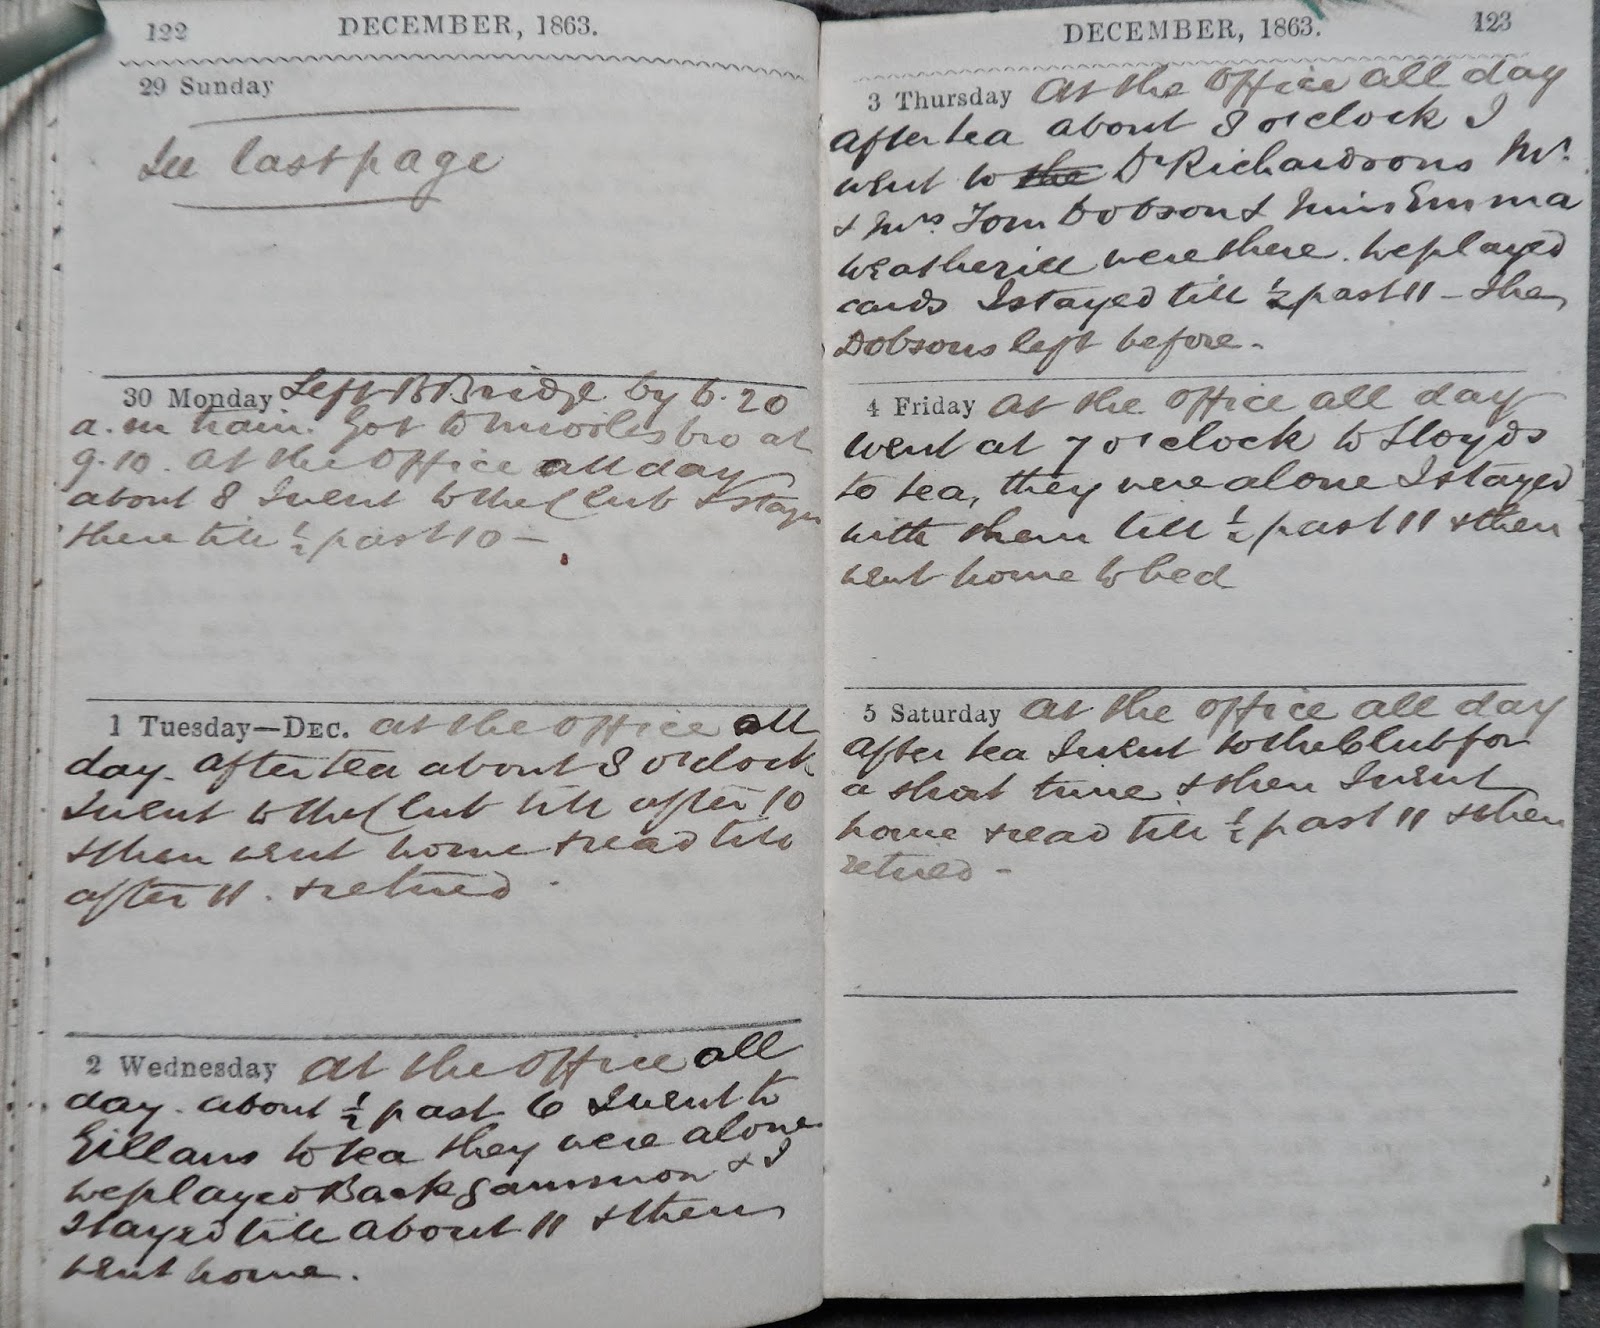 122 DECEMBER, 1863.
29 Sunday
See last page
30 Monday Left B Bridge by 6.20
a.m train. Got to Middlesbro at
9.10. At the Office all day
about 8 I went to the Club & stayed
there till ½ past 10 -
1 Tuesday—DEC. at the Office all
day. after tea about 8 o'clock
I went to the Club till after 10
& then went home & read till
after 11. & retired.
2 Wednesday At the Office all
day. about ½ past 6 I went to
Gillans to tea they were alone
we played Backgammon & I
stayed till about 11 & then
went home.
DECEMBER, 1863. 123
3 Thursday At the Office all day
after tea about 8 o'clock I
went to the Dr Richardsons Mr.
& Mrs. Tom Dobson & Miss Emma
Weatherill were there. We played
cards I stayed till ½ past 11 - The
Dobsons left before -
4 Friday At the Office all day
went at 7 o'clock to Lloyds
to tea, they were alone I stayed
with them till ½ past 11 & then
went home to bed
5 Saturday At the Office all day
after tea I went to the Club for
a short time & then I went
home & read till ½ past 11 & then
retired -